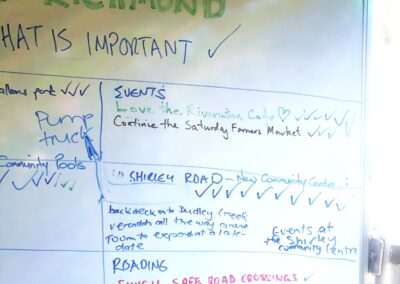 RICHMOND
WHAT IS IMPORTANT ✓
park ✓✓✓
Pump
truck
Community Pools
✓✓✓✓✓✓
EVENTS
Love the Riverution Cafe ♡ ✓✓✓✓✓
Continue the Saturday Farmers Market ✓✓✓
10 SHIRLEY ROAD – New Community Centre :
✓✓✓✓✓✓✓✓✓✓
back deck on to Dudley Creek
verandah all the way around
room to expand at a later
date
Events at
the Shirley
community Centre
ROADING
SAFE ROAD CROSSINGS ✓